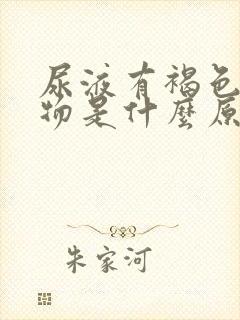 尿液有褐色
物是什麼原
朱家河